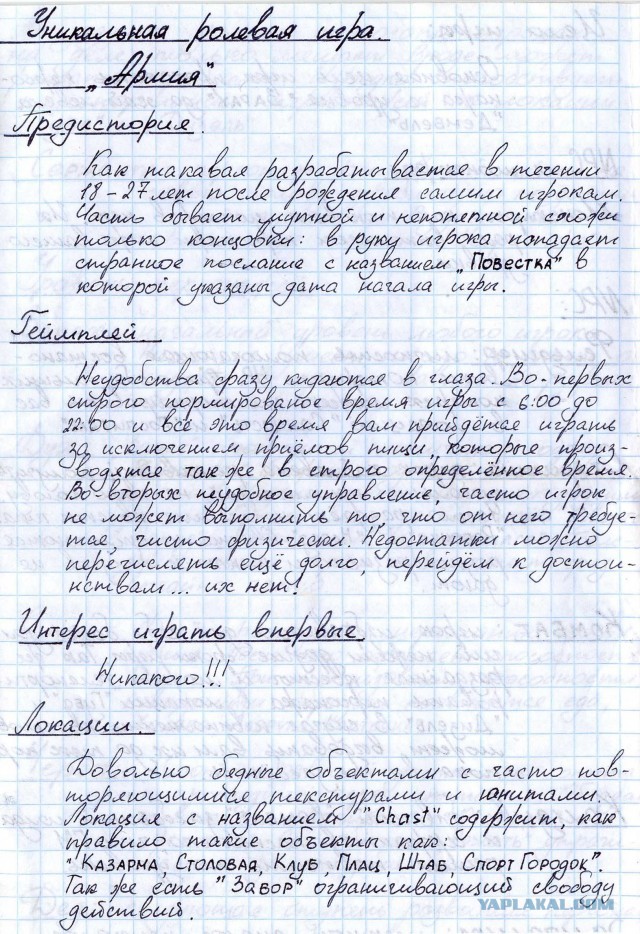 Уникальная ролевая игра.
"Армия"
Предистория.
Как такавая разрабатывается в течении
18-27 лет после рождения самим игрокам.
Часть бывает мутной и непонятной схожи
только концовки: в руку игрока попадает
странное послание с названием "Повестка" в
которой указаны дата начала игры.
Геймплей.
Неудобства сразу кидаются в глаза. Во-первых
строго нормированое время игры с 6:00 до
22:00 и всё это время вам прийдётся играть
за исключением приёмов пищи, которые произ-
водятся так же в строго определённое время.
Во-вторых неудобное управление, часто игрок
не может выполнить то, что от него требуе-
тся, чисто физически. Недостатки можно
перечислять ещё долго, перейдём к достои-
нствам... их нет!
Интерес играть впервые
Никакого!!!
Локации.
Довольно бедные объектами с часто пов-
торяющимися текстурами и юнитами.
Локация с названием "Chast" содержит, как
правило такие объекты как:
"Казарма, Столовая, Клуб, Плац, Штаб, Спорт Городок".
Так же есть "Забор" ограничивающий свободу
действий.
YAPLAKAL.COM